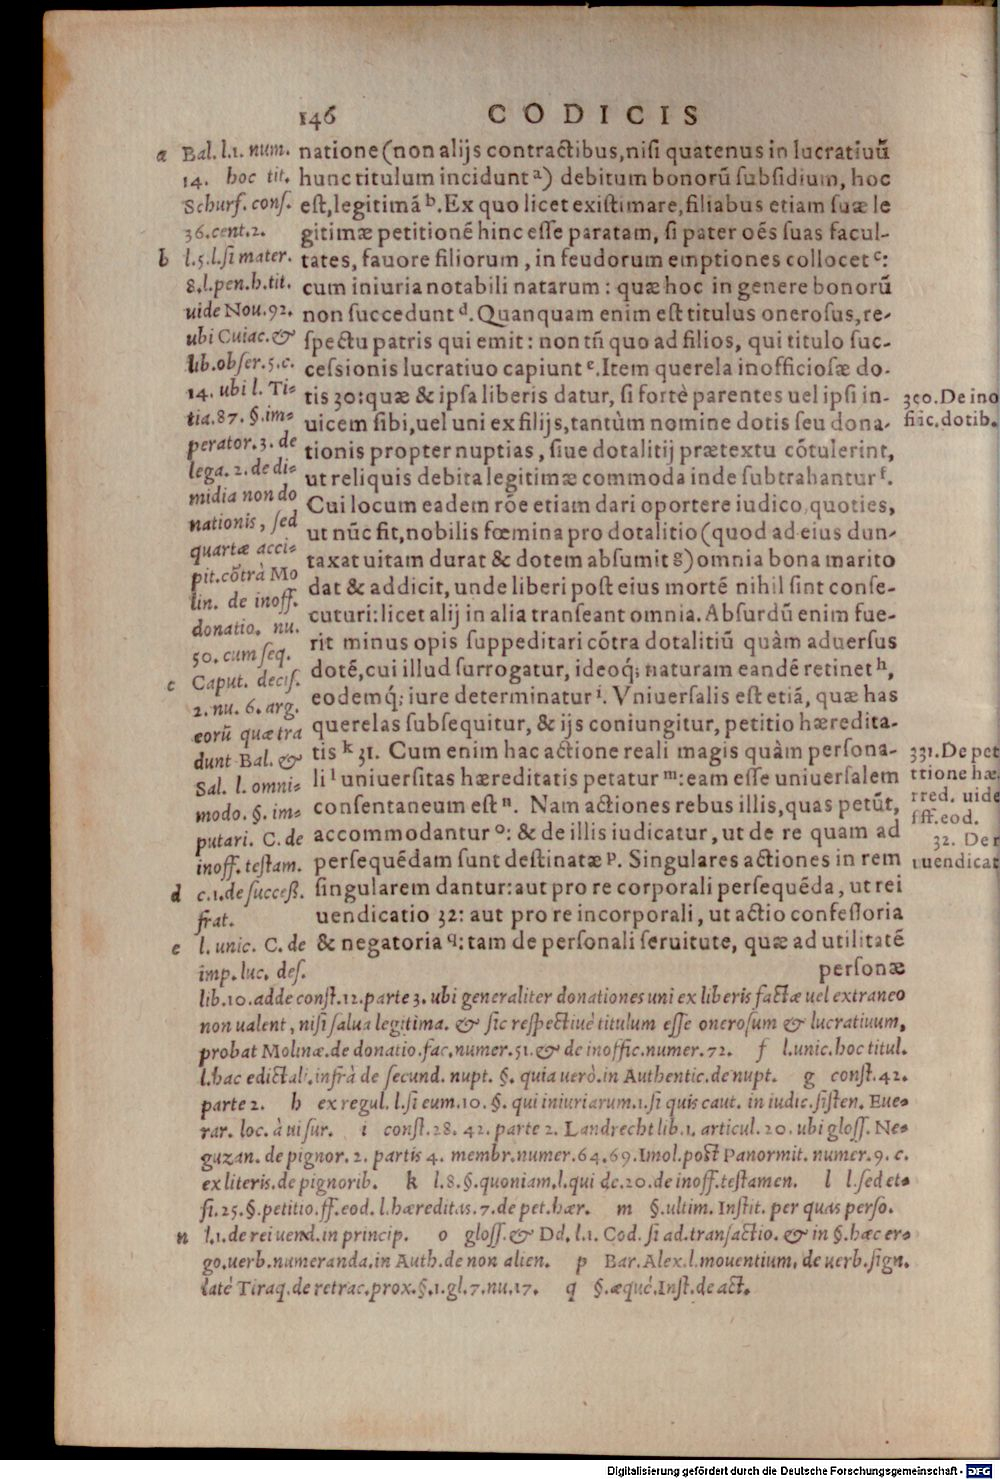 146 CODICIS
natione (non alijs contractibus, nisi quatenus in lucratiuū
hunc titulum incidunt ᵃ) debitum bonorū subsidium, hoc
est, legitimā ᵇ. Ex quo licet existimare, filiabus etiam suæ le
gitimæ petitionē hinc esse paratam, si pater oēs suas facul-
tates, fauore filiorum, in feudorum emptiones collocet ᶜ:
cum iniuria notabili natarum: quæ hoc in genere bonorū
non succedunt ᵈ. Quanquam enim est titulus onerosus, re-
spectu patris qui emit: non tñ quo ad filios, qui titulo suc-
cessionis lucratiuo capiunt ᵉ. Item querela inofficiosæ do-
tis 30: quæ & ipsa liberis datur, si fortè parentes uel ipsi in-
uicem sibi, uel uni ex filijs, tantùm nomine dotis seu dona-
tionis propter nuptias, siue dotalitij prætextu cōtulerint,
ut reliquis debita legitimæ commoda inde subtrahantur ᶠ.
Cui locum eadem rōe etiam dari oportere iudico, quoties,
ut nūc fit, nobilis fœmina pro dotalitio (quod ad eius dun-
taxat uitam durat & dotem absumit ᵍ) omnia bona marito
dat & addicit, unde liberi post eius mortē nihil sint conse-
cuturi: licet alij in alia transeant omnia. Absurdū enim fue-
rit minus opis suppeditari cōtra dotalitiū quàm aduersus
dotē, cui illud surrogatur, ideoq́; naturam eandē retinet ʰ,
eodemq́; iure determinatur ⁱ. Vniuersalis est etiā, quæ has
querelas subsequitur, & ijs coniungitur, petitio hæredita-
tis ᵏ 31. Cum enim hac actione reali magis quàm persona-
li ˡ uniuersitas hæreditatis petatur ᵐ: eam esse uniuersalem
consentaneum est ⁿ. Nam actiones rebus illis, quas petūt,
accommodantur ᵒ: & de illis iudicatur, ut de re quam ad
persequēdam sunt destinatæ ᵖ. Singulares actiones in rem
singularem dantur: aut pro re corporali persequēda, ut rei
uendicatio 32: aut pro re incorporali, ut actio confessoria
& negatoria q: tam de personali seruitute, quæ ad utilitatē
personæ
a Bal. l.1. num.
14. hoc tit.
Schurf. cons.
36. cent.2.
b l.5. l. si mater.
8. l. pen. h. tit.
uide Nou. 92.
ubi Cuiac. &
lib. obser. 5. c.
14. ubi l. Ti-
tia. 87. §. im-
perator. 3. de
lega. 2. de di-
midia non do
nationis, sed
quartæ acci-
pit. cōtrà Mo
lin. de inoff.
donatio. nu.
50. cum seq.
c Caput. decis.
2. nu. 6. arg.
eorū quæ tra
dunt Bal. &
Sal. l. omni-
modo. §. im-
putari. C. de
inoff. testam.
d c.1. de success.
frat.
e l. unic. C. de
imp. luc. des.
lib. 10. adde const. 12. parte 3. ubi generaliter donationes uni ex liberis factæ uel extraneo
non ualent, nisi salua legitima. & sic respectiuè titulum esse onerosum & lucratiuum,
probat Molinæ. de donatio. fac. numer. 51. & de inoffic. numer. 72. f l. unic. hoc titul.
l. hac edictali. infrà de secund. nupt. §. quia uerò. in Authentic. de nupt. g const. 42.
parte 2. h ex regul. l. si eum. 10. §. qui iniuriarum. 1. si quis caut. in iudic. sisten. Eue-
rar. loc. à ui sur. i const. 28. 42. parte 2. Landrecht lib. 1. articul. 20. ubi gloss. Ne-
guzan. de pignor. 2. partis 4. membr. numer. 64. 69. Imol. post Panormit. numer. 9. c.
ex literis. de pignorib. k l. 8. §. quoniam. l. qui de. 20. de inoff. testamen. l l. sed et-
si. 25. §. petitio. ff. eod. l. hæreditas. 7. de pet. hær. m §. ultim. Instit. per quas perso.
n l.1. de rei uend. in princip. o gloss. & Dd. l.1. Cod. si ad. transactio. & in §. hæc er-
go. uerb. numeranda. in Auth. de non alien. p Bar. Alex. l. mouentium. de uerb. sign.
latè Tiraq. de retrac. prox. §. 1. gl. 7. nu. 17. q §. æquè. Inst. de act.
De ino
dotib.
331. De pet
uide
eod.
32. De r
uendicat
Digitalisierung gefördert durch die Deutsche Forschungsgemeinschaft - DFG